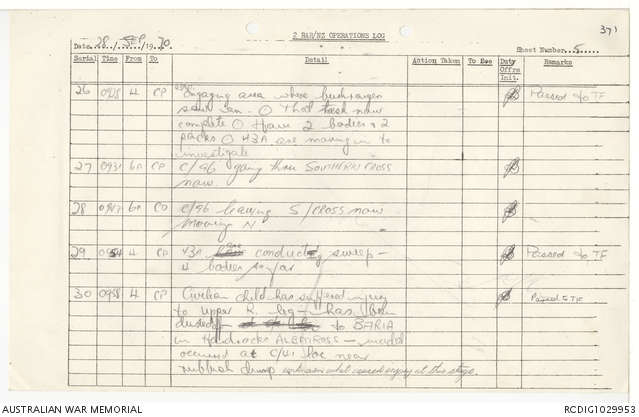 2 RAR/NZ OPERATIONS LOG
371
Date 28 / SEP / 1970
Sheet Number 5
Serial Time From To Detail Action Taken To See Duty Offrs Init. Remarks
26 0928 4 CP Engaging area where bushranger Passed to TF
saw En. O That task now
complete O Have 2 bodies & 2
packs O 43A are moving in to
investigate
27 0931 6A CP C/96 going thru SOUTHERN CROSS
now.
28 0947 6A CP C/96 leaving S/CROSS now
moving N
29 0954 4 CP 43A are conducting sweep - Passed to TF
4 bodies so far
30 0958 4 CP Civilian child has suffered injury Passed to TF
to upper R. leg - has been
dusted off to BARIA
in ALBATROSS -
occured at C/41 loc near
rubbish dump what caused injury at this stage.
AUSTRALIAN WAR MEMORIAL
RCDIG1029953